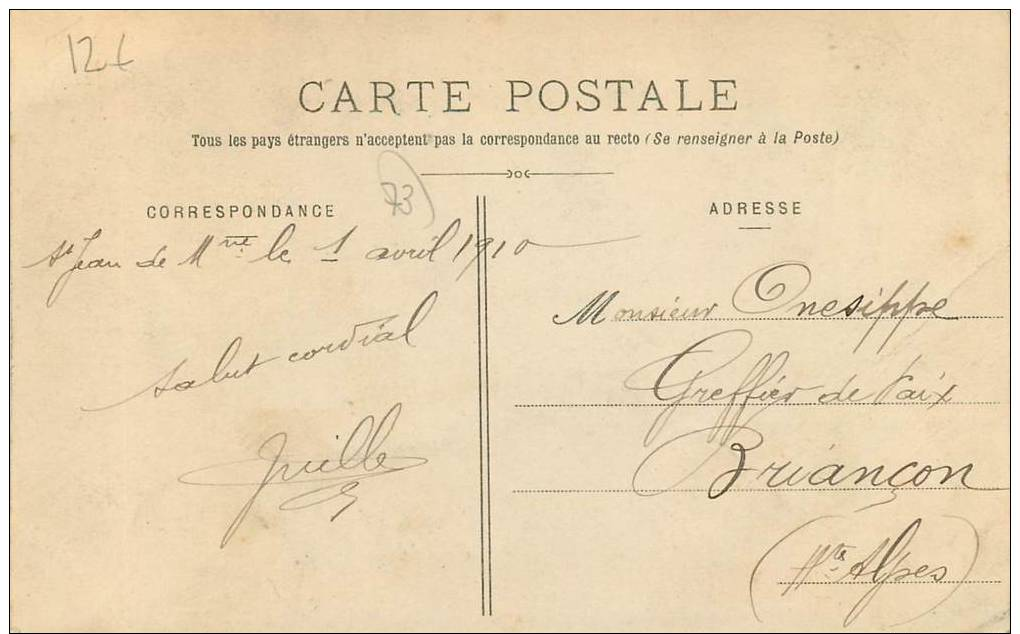 12 €
CARTE POSTALE
Tous les pays étrangers n'acceptent pas la correspondance au recto (Se renseigner à la Poste)
73
CORRESPONDANCE
St Jean de Mne le 1 avril 1910
salut cordial
ADRESSE
Monsieur Onesippe
Greffier de Paix
Briançon
(Htes Alpes)